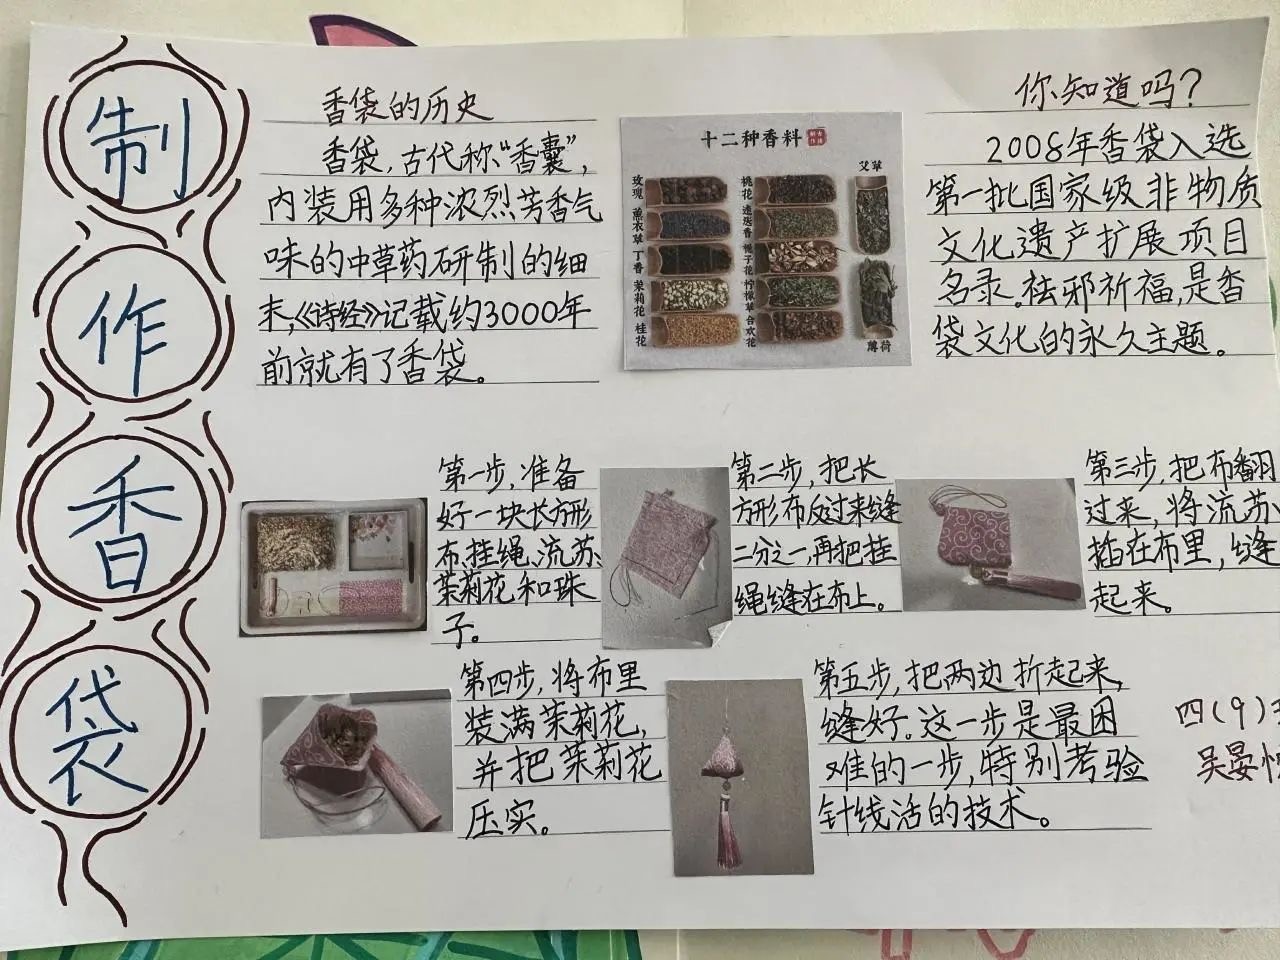 制作香袋
香袋的历史
香袋，古代称“香囊”，
内装用多种浓烈芳香气
味的中草药研制的细
末，《诗经》记载约3000年
前就有了香袋。
十二种香料
玫瑰
薰衣草
丁香
茉莉花
桂花
桃花
迷迭香
栀子花
柠檬草
合欢花
艾草
薄荷
你知道吗？
2008年香袋入选
第一批国家级非物质
文化遗产扩展项目
名录。祛邪祈福，是香
袋文化的永久主题。
第一步，准备
好一块长方形
布、挂绳、流苏、
茉莉花和珠
子。
第二步，把长
方形布反过来缝
二分之一，再把挂
绳缝在布上。
第三步，把布翻
过来，将流苏
掐在布里，缝
起来。
第四步，将布里
装满茉莉花，
并把茉莉花
压实。
第五步，把两边折起来，
缝好。这一步是最困
难的一步，特别考验
针线活的技术。
四(9)
吴晏